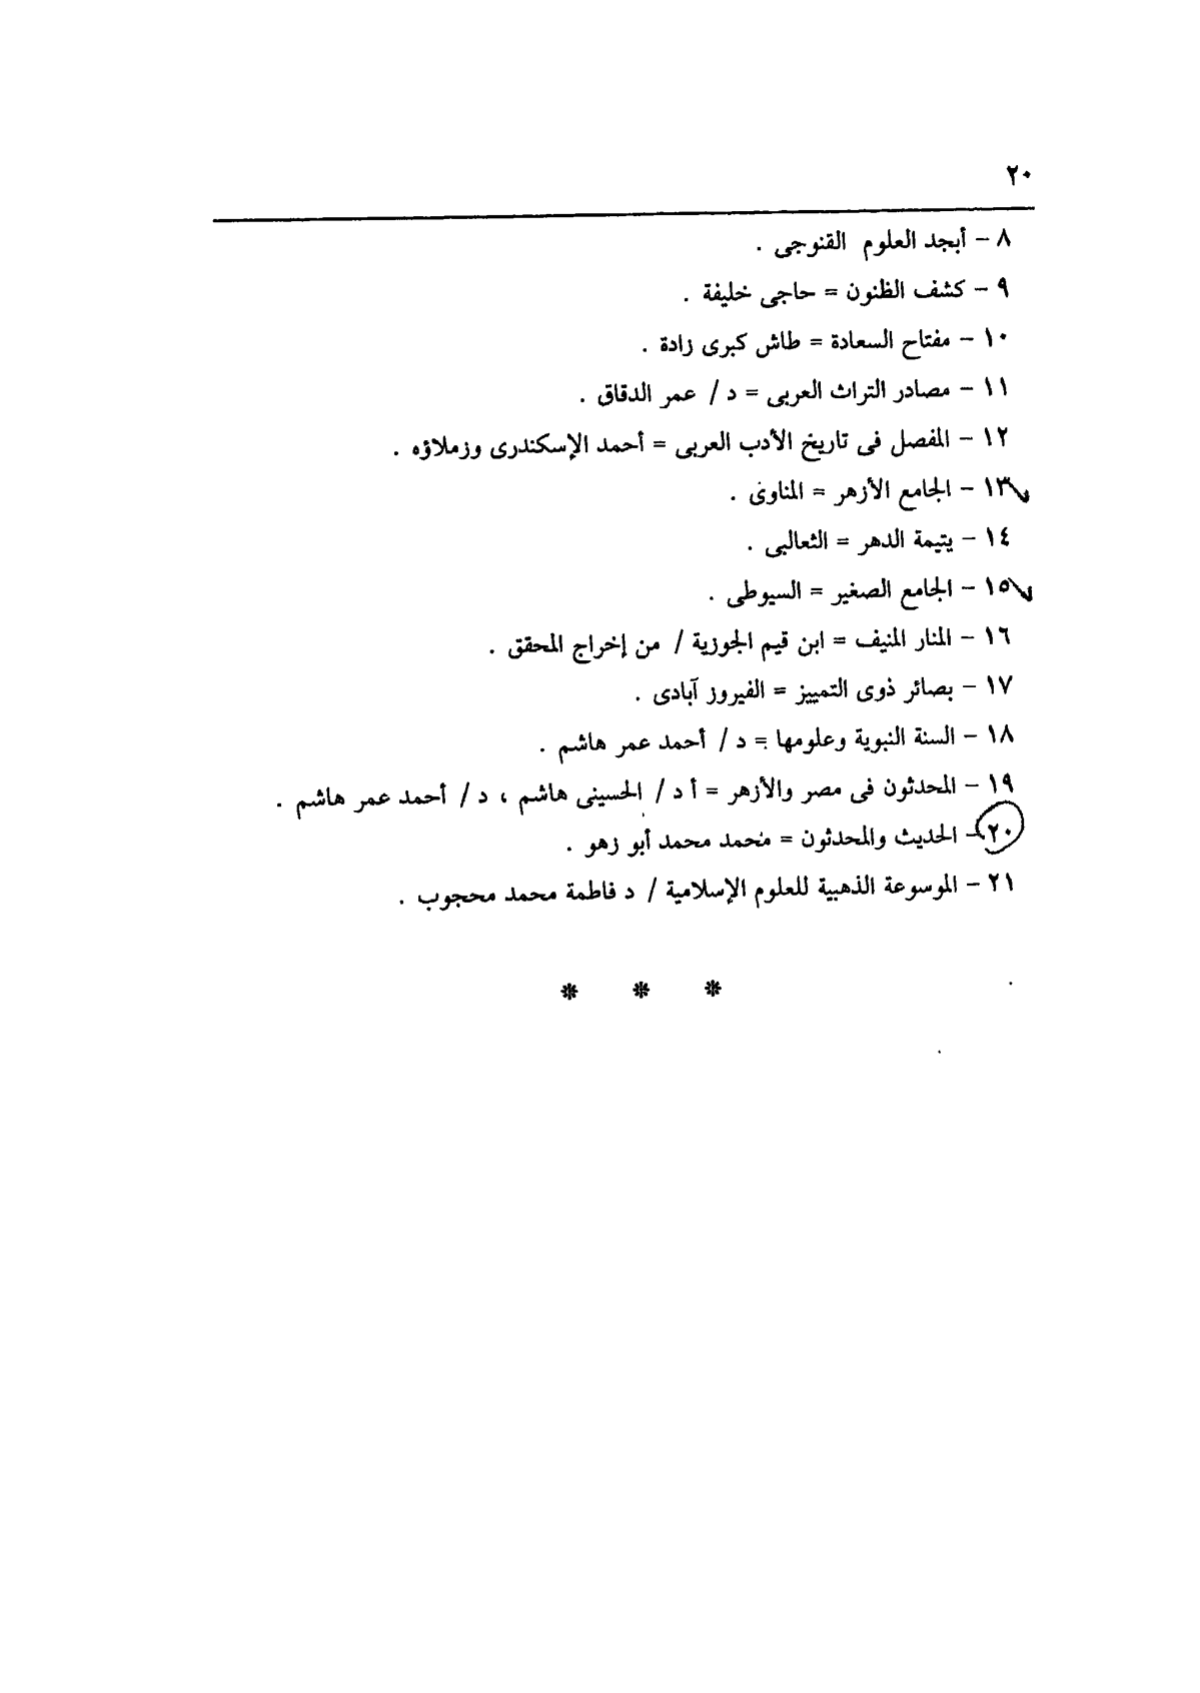 ٢٠
٨ – أبجد العلوم القنوجى .
٩ – كشف الظنون = حاجى خليفة .
١٠ – مفتاح السعادة = طاش كبرى زادة .
١١ – مصادر التراث العربى = د / عمر الدقاق .
١٢ – المفصل فى تاريخ الأدب العربى = أحمد الإسكندرى وزملاؤه .
١٣ – الجامع الأزهر = المناوى .
١٤ – يتيمة الدهر = الثعالبى .
١٥ – الجامع الصغير = السيوطى .
١٦ – المنار المنيف = ابن قيم الجوزية / من إخراج المحقق .
١٧ – بصائر ذوى التمييز = الفيروز آبادى .
١٨ – السنة النبوية وعلومها = د / أحمد عمر هاشم .
١٩ – المحدثون فى مصر والأزهر = أ د / الحسينى هاشم ، د / أحمد عمر هاشم .
٢٠ – الحديث والمحدثون = محمد محمد أبو زهو .
٢١ – الموسوعة الذهبية للعلوم الإسلامية / د فاطمة محمد محجوب .
* * *